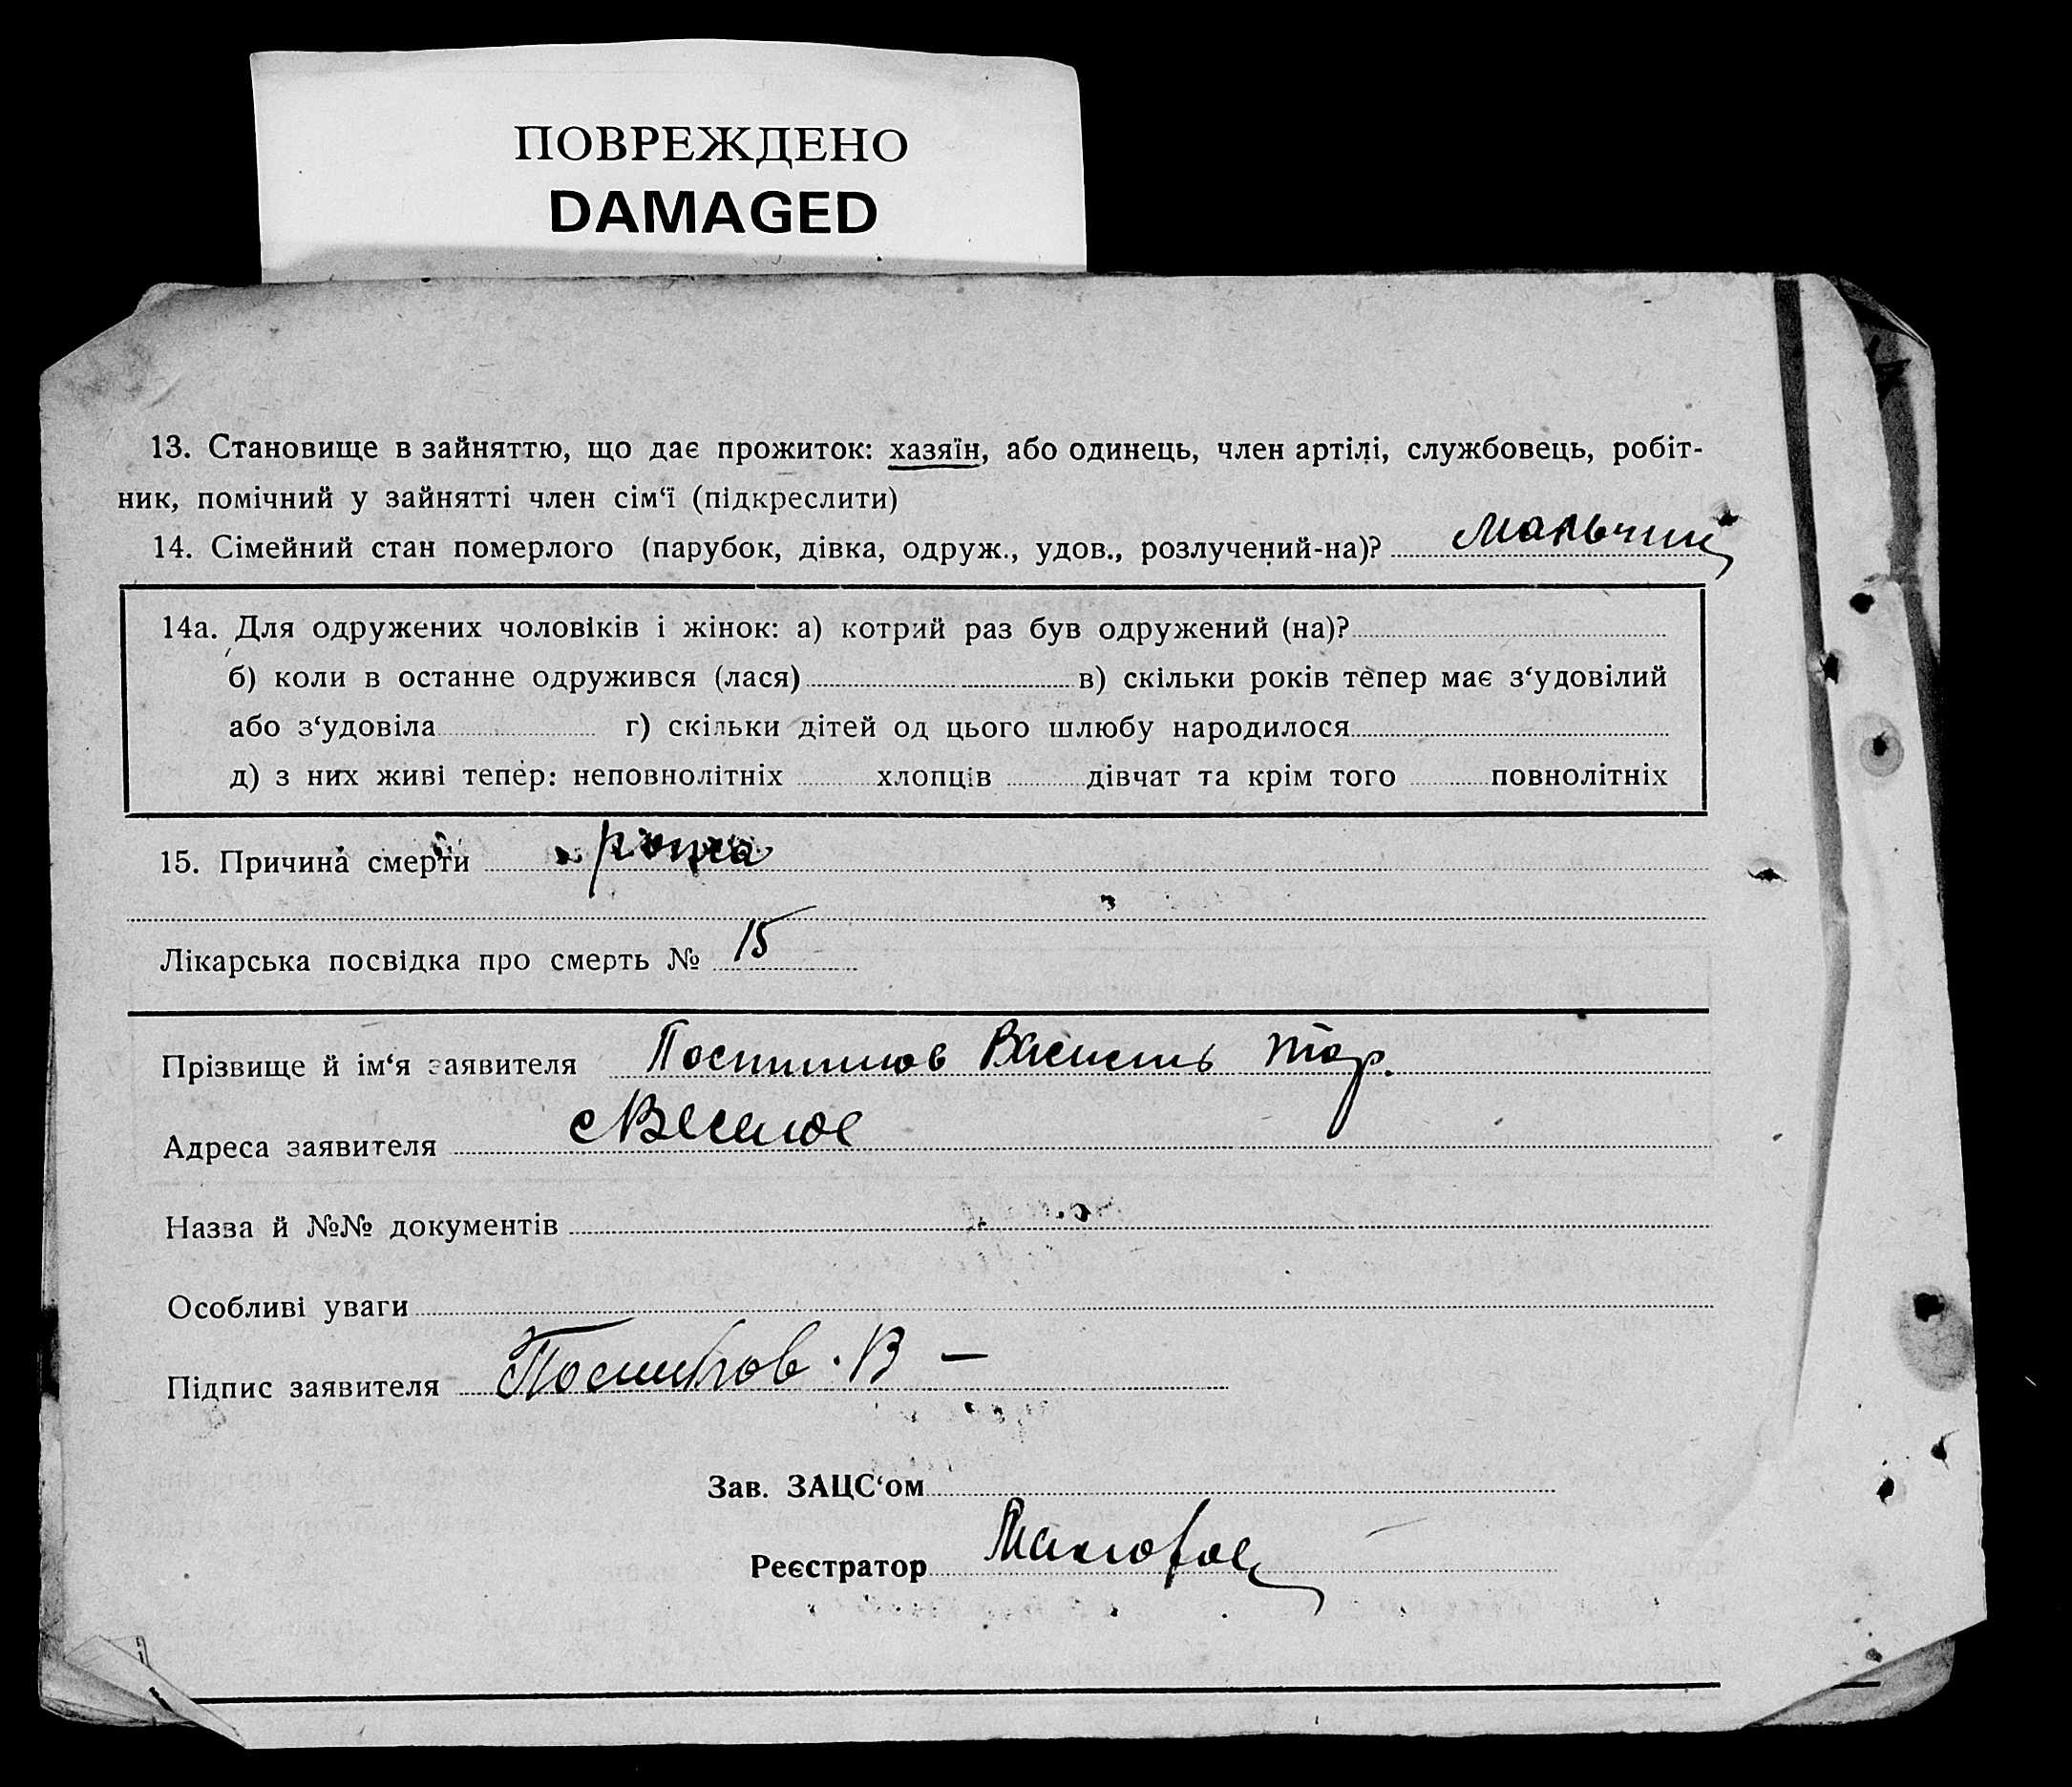 ПОВРЕЖДЕНО
DAMAGED
13. Становище в зайняттю, що дає прожиток: хазяїн, або одинець, член артілі, службовець, робіт-
ник, помічний у зайнятті член сім‘ї (підкреслити)
14. Сімейний стан померлого (парубок, дівка, одруж., удов., розлучений-на)?
14а. Для одружених чоловіків і жінок: а) котрий раз був одружений (на)?
б) коли в останне одружився (лася) в) скільки років тепер має з‘удовілий
або з‘удовіла г) скільки дітей од цього шлюбу народилося
д) з них живі тепер: неповнолітніх хлопців дівчат та крім того повнолітніх
15. Причина смерти
Лікарська посвідка про смерть № 15
Прізвище й ім‘я заявителя
Адреса заявителя с Веселое
Назва й №№ документів
Особливі уваги
Підпис заявителя
Зав. ЗАЦС‘ом
Реєстратор